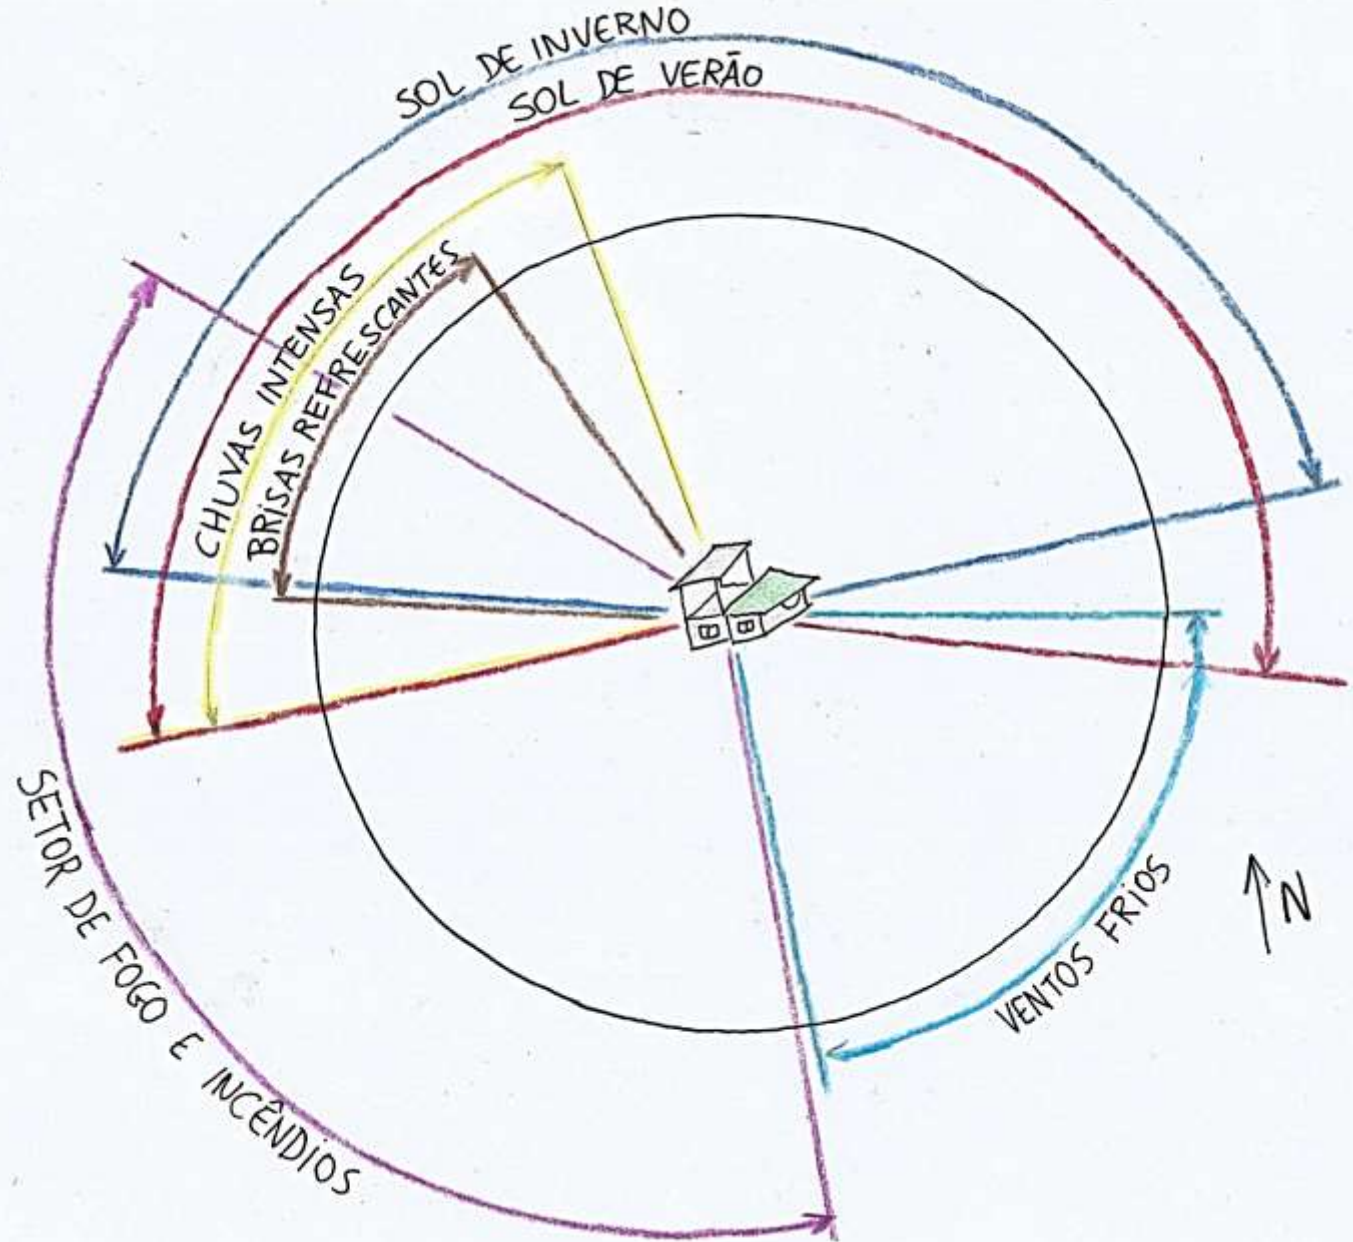 SOL DE INVERNO
SOL DE VERÃO
CHUVAS INTENSAS
BRISAS REFRESCANTES
SETOR DE FOGO E INCÊNDIOS
VENTOS FRIOS
N